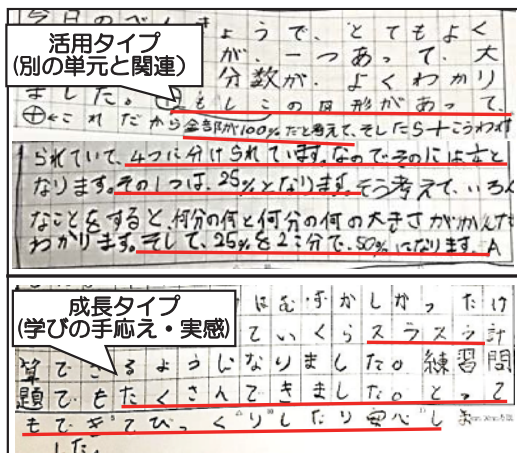 今日のべ
ようで、とてもよく
活用タイプ
(別の単元と関連)
が、一つあって、大
分数が、よくわかり
ました。
もしこの円形があって、
⊕←これだから全部が100%だと考えて、そしたら十こうわけ
られていて、4つに分けられています。なのでその
なります。その1つは、25%となります。そう考えて、いろん
なことをすると、何分の何と何分の何の大きさがかんたん
わかります。そして、25%を2こ分で、50%になります。A
成長タイプ
(学びの手応え・実感)
はむずかしかったけ
ていくらスラスラ計
算できるようになりました。練習問
題でもたくさんできました。とって
もできてびっくりしたり安心しま
した。